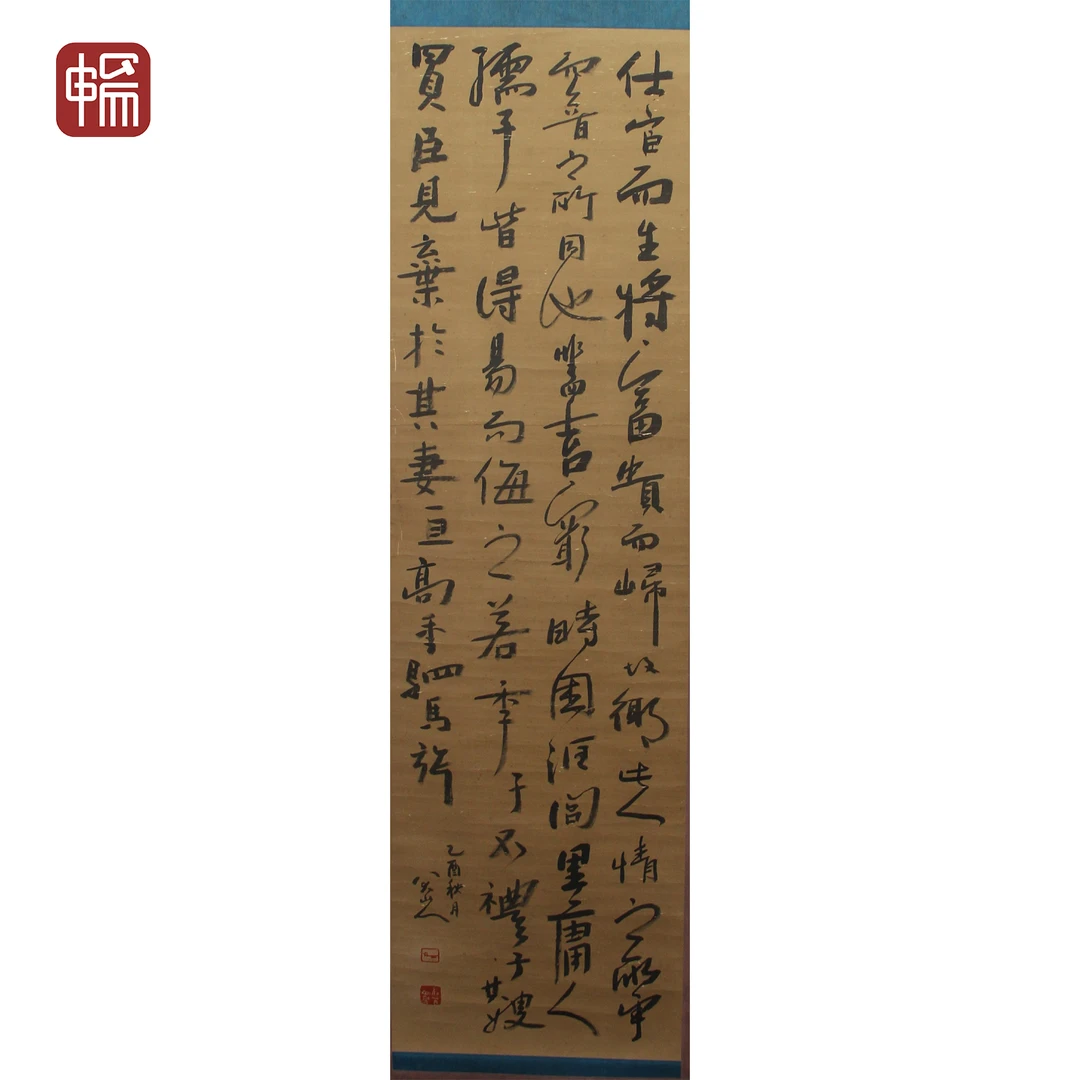 仕宦而至將富貴而歸故鄉此人情之所榮
而昔之所同也蓋窮時困阨閭里庸人
孺子皆得易而侮之若季子不禮于其嫂
買臣見棄於其妻一旦高車駟馬
乙酉秋月
八大山人